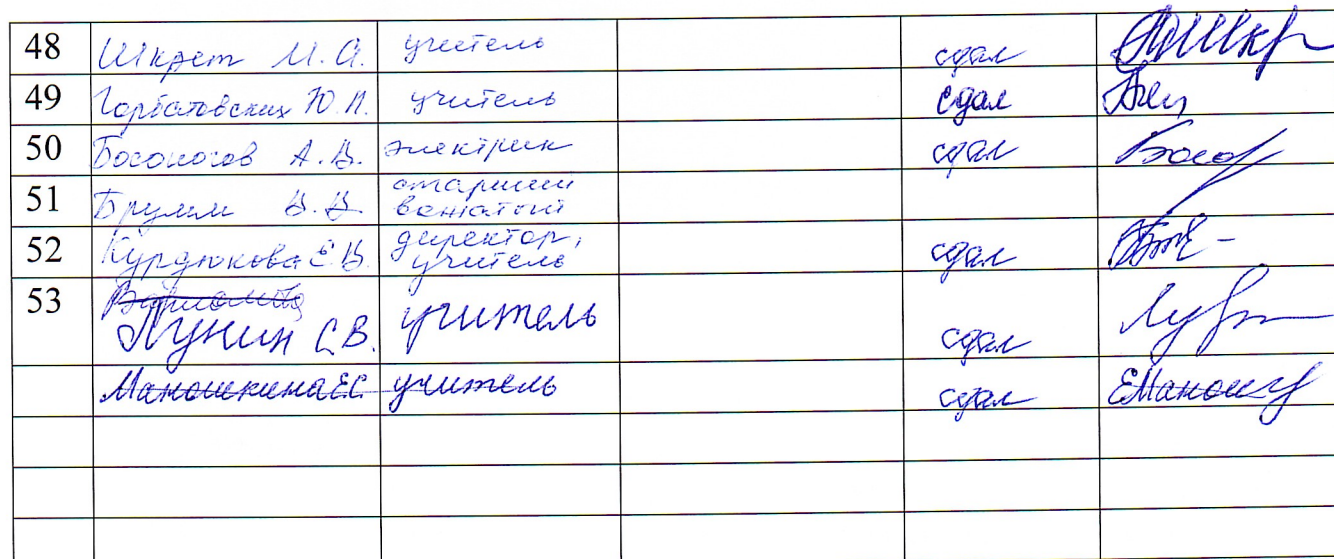 48 Шкрет М.А. учитель сдал
49 Горбатовских Ю.П. учитель сдал
50 Босоногов А.В. электрик сдал Босог
51 Брумм В.В. старший вожатый
52 Курдюкова Е.В. директор, учитель сдал
53
Лунин С.В. учитель сдал
Маношкина Е.С. учитель сдал ЕМанош